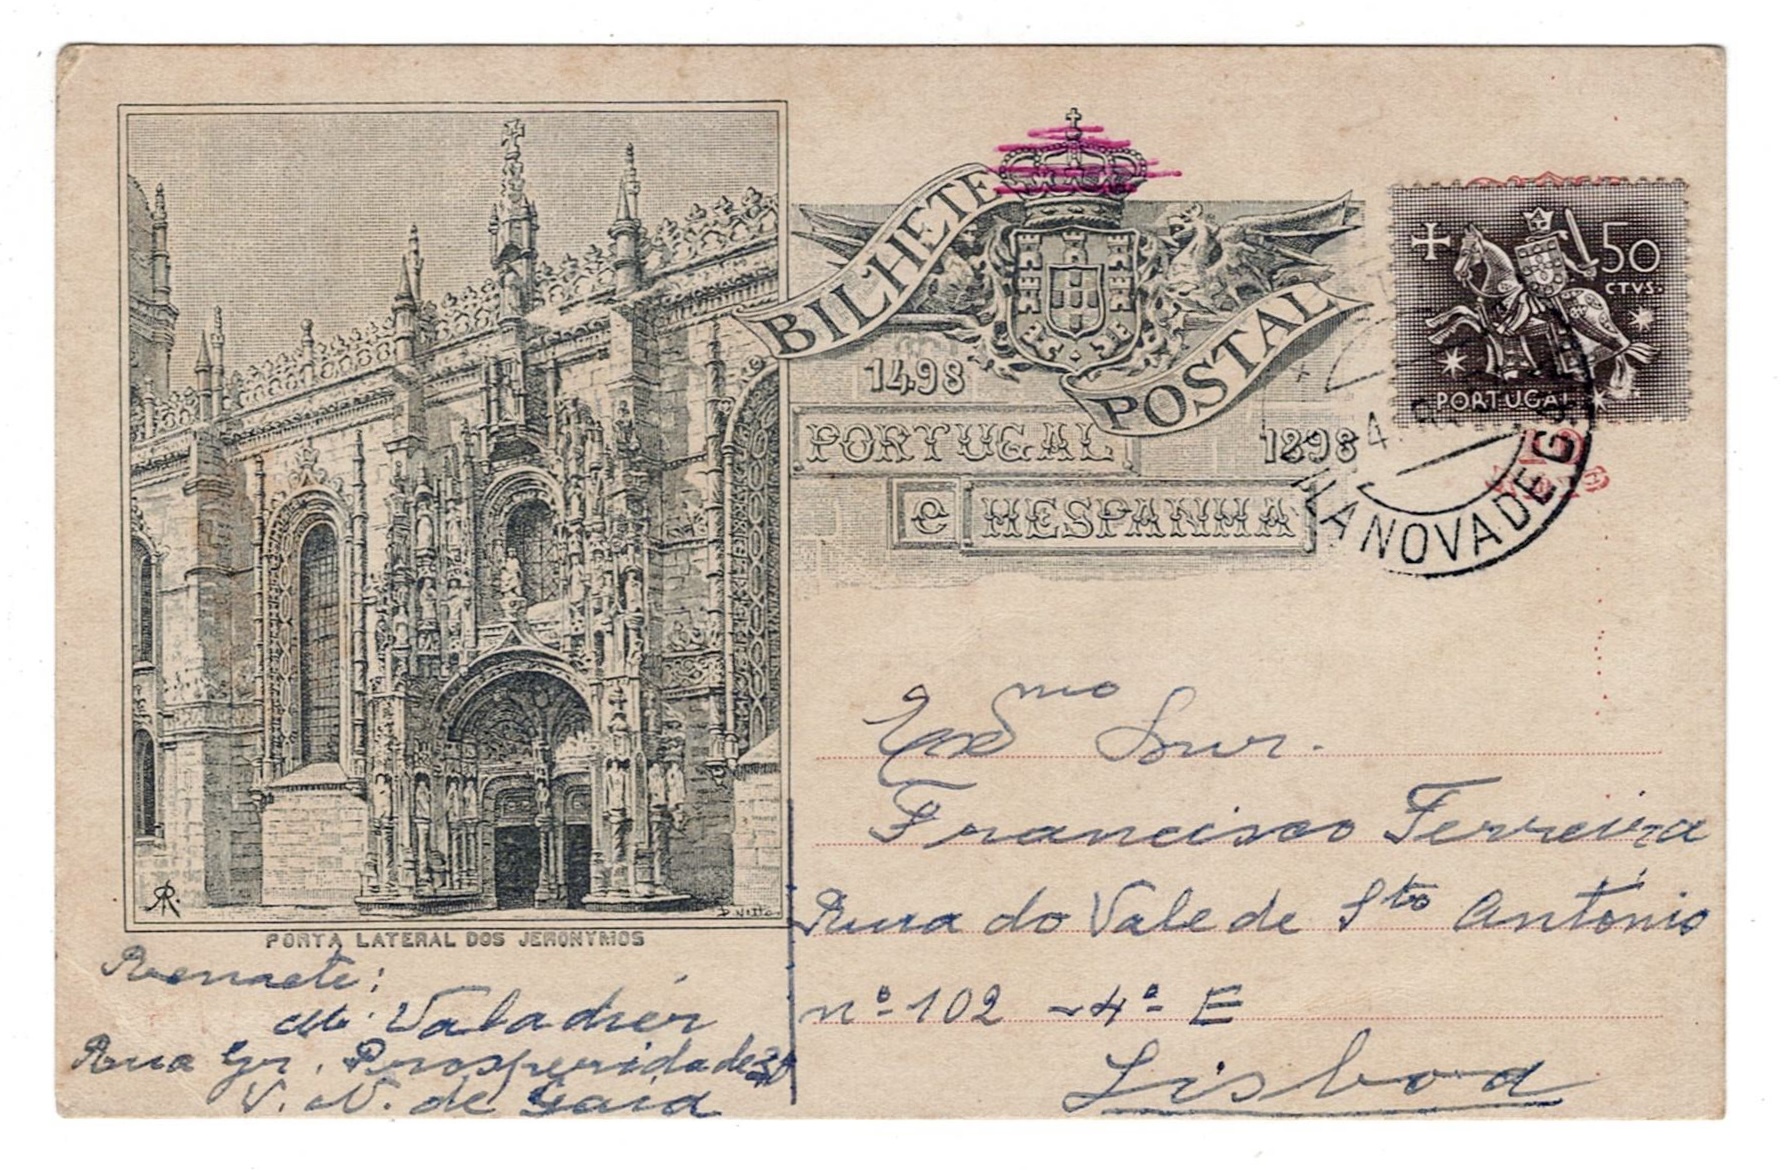 BILHETE POSTAL
1498
PORTUGAL
1898
e HESPANHA
50
CTVS.
PORTUGAL
VILA NOVA DE G
PORTA LATERAL DOS JERONYMOS
D. Netto
Exmo Snr.
Francisco Ferreira
Rua do Vale de Sto António
nº 102 - 4º E
Lisboa
Valadier
Rua Gr. Prosperidade
V. N. de Gaia